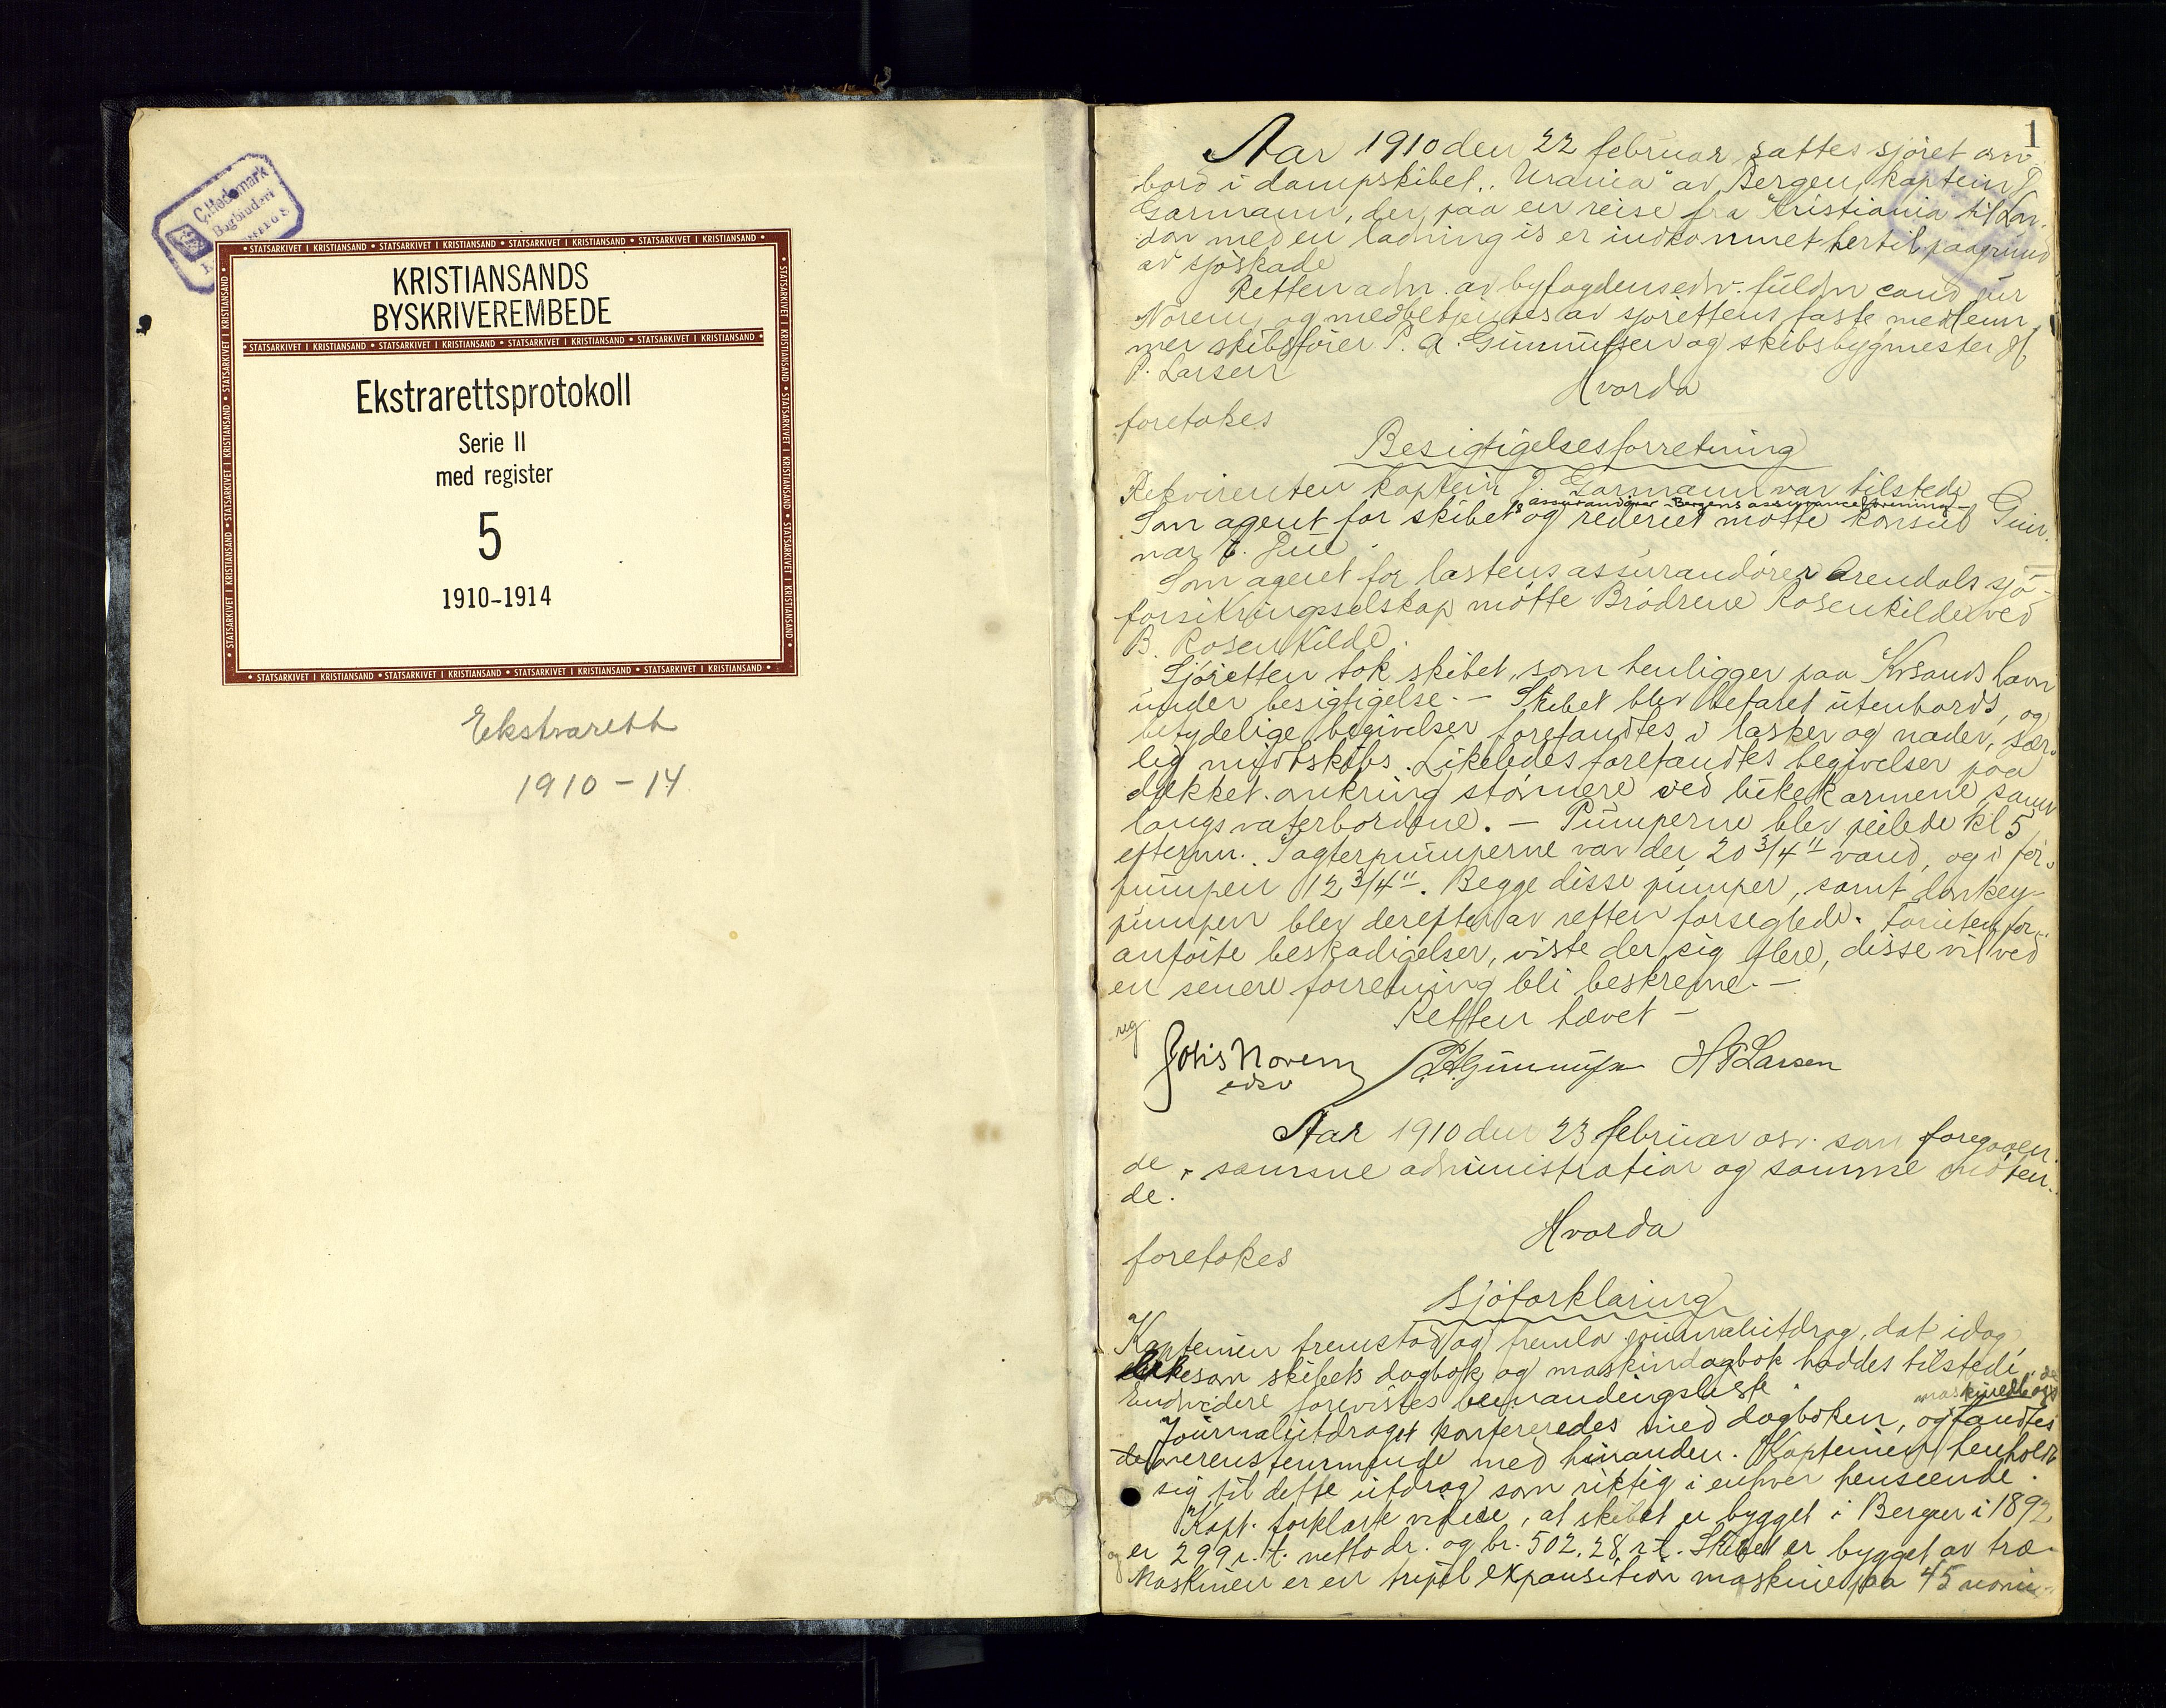 C. Hedemark
Bogbinderi
STATSARKIVET I KRISTIANSAND
KRISTIANSANDS
BYSKRIVEREMBEDE
STATSARKIVET I KRISTIANSAND
Ekstrarettsprotokoll
Serie II
med register
5
1910-1914
STATSARKIVET I KRISTIANSAND
Ekstrarett
1910 - 14
1
Aar 1910 den 22 februar sattes sjöret om-
bord i dampskibet „Urania" av Bergen, kaptein J.
Garmann, der paa en reise fra Kristiania til Lon-
don med en ladning is er indkommet hertil paagrund
av sjöskade
Retten adm. av byfogdens edsv. fuldm cand jur
Norem, og medbetjentes av sjörettens faste medlem-
mer skibsförer P. A. Gunnufsen og skibsbygmester H.
P. Larsen
Hvorda
foretokes
Besigtigelsesforretning
Rekvirenten kaptein J. Garmann var tilstede
s assurandör - Bergens assuranceforening -
Som agent for skibet og rederiet mötte konsul Gun-
nar J.
Som agent for lastens assurandörer Arendals sjö-
forsikringsselskap mötte Brödrene Rosenkilde ved
B. Rosenkilde.
Sjöretten tok skibet, som henligger paa Krsands havn
under besigtigelse. — Skibet blev befaret utenbords, og
betydelige begivelser forefandtes i lasker og nader, sær-
lig midtskibs. Likeledes forefandtes begivelser paa
dækket omkring stöinere ved lukekarmene, samt
langs vaterbordene. — Pumperne blev peilede kl 5
efterm. I agterpumperne var der 20 3/4" vand, og i for-
pumpen 12 3/4". Begge disse pumper, samt donkey-
pumpen blev derefter av retten forseglede. Foruten for-
anförte beskadigelser, viste der sig flere, disse vil ved
en senere forretning bli beskrevne. —
Retten hævet —
reg
Johs Norem PAGunnufsen HPLarsen
edsv
Aar 1910 den 23 februar osv. som foregaaen-
de, samme administration og samme möten-
de.
Hvorda
foretokes
Sjöforklaring
Kapteinen fremstod og fremla journalutdrag, dat idag
likesom skibets dagbok og maskindagbok haddes tilstede,
Endvidere forevistes bemandingsliste.
Journalutdraget konfereredes med dagboken, og fandtes
de overenstemmende med hinanden. Kapteinen henholdt
sig til dette utdrag som riktig i enhver henseende.
Kapt. forklarte videre, at skibet er bygget i Bergen i 1892
er 299 r. t. netto dr. og br. 502.28 r t. Skibet er bygget av træ.
Maskinen er en tripel expansition maskine paa 45 nomi-